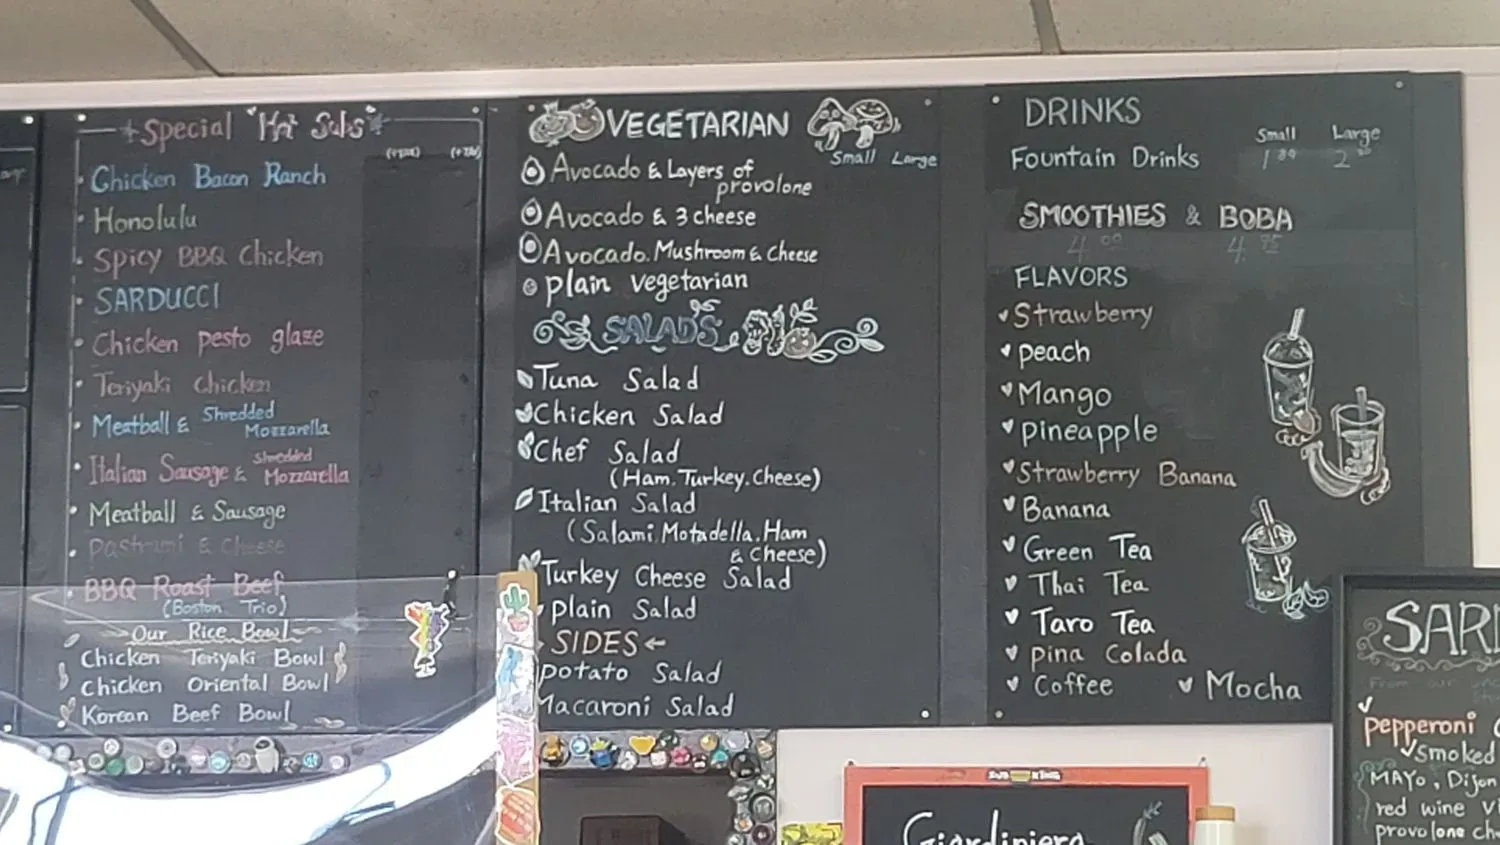 Special Hot Subs
(+tax) (+tax)
Chicken Bacon Ranch
Honolulu
Spicy BBQ Chicken
SARDUCCI
Chicken pesto glaze
Teriyaki Chicken
Meatball & Shredded
Mozzarella
Italian Sausage & Shredded
Mozzarella
Meatball & Sausage
Pastrami & Cheese
BBQ Roast Beef
(Boston Trio)
Our Rice Bowl
Chicken Teriyaki Bowl
Chicken Oriental Bowl
Korean Beef Bowl
VEGETARIAN
Small Large
Avocado & Layers of
provolone
Avocado & 3 cheese
Avocado. Mushroom & Cheese
plain vegetarian
SALADS
Tuna Salad
Chicken Salad
Chef Salad
(Ham. Turkey. Cheese)
Italian Salad
(Salami. Motadella. Ham
& Cheese)
Turkey Cheese Salad
plain Salad
SIDES
potato Salad
Macaroni Salad
DRINKS
Small Large
Fountain Drinks
SMOOTHIES & BOBA
FLAVORS
Strawberry
peach
Mango
pineapple
Strawberry Banana
Banana
Green Tea
Thai Tea
Taro Tea
pina Colada
Coffee Mocha
Giardiniera
SAR
From our
pepperoni
Smoked
MAYO, Dijon
red wine
provolone